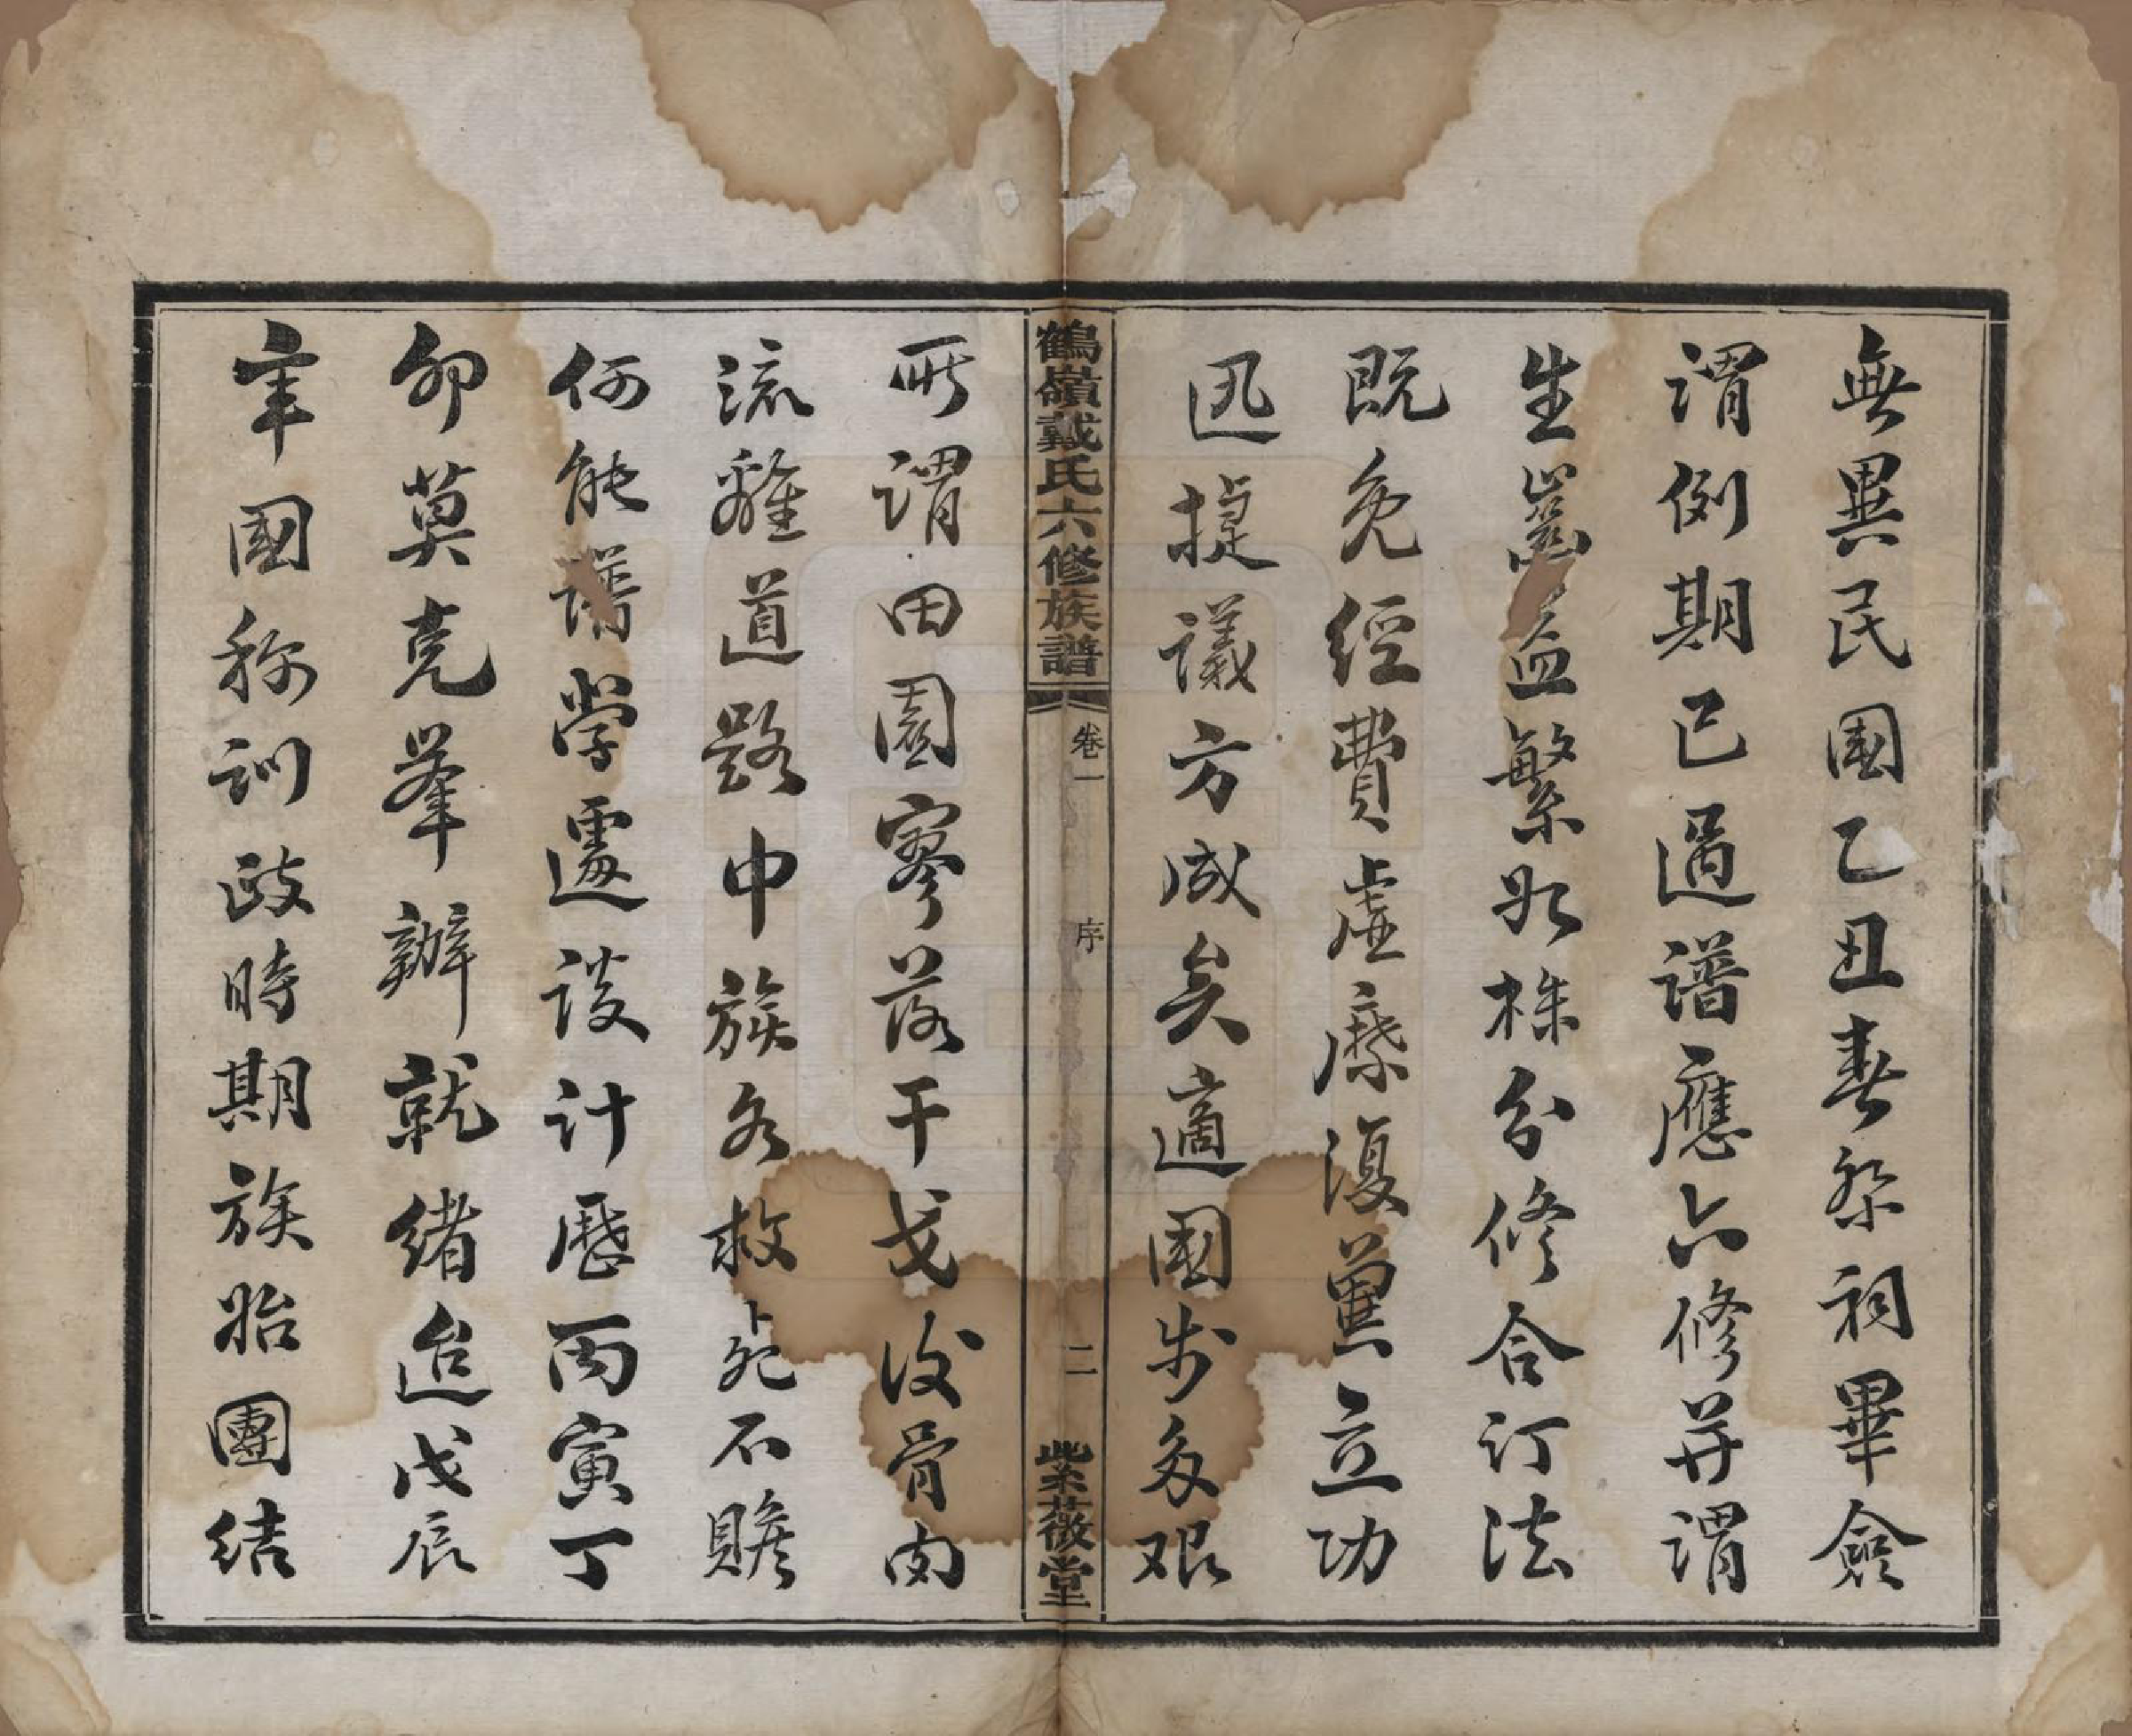 無異民國乙丑春祭祠畢僉
謂例期已過譜應六修并謂
生齒益繁如株分修合訂法
既免經費虛糜復薫立功
迅捷議方成矣適國步多艱
鶴嶺戴氏六修族譜
卷一
序
二
紫薇堂
所謂田園寥落干戈後骨肉
流離道路中族各救死不贍
何能譜學遽談計歷丙寅丁
卯莫克举辦就緒迨戊辰
年國称訓政時期族始團結